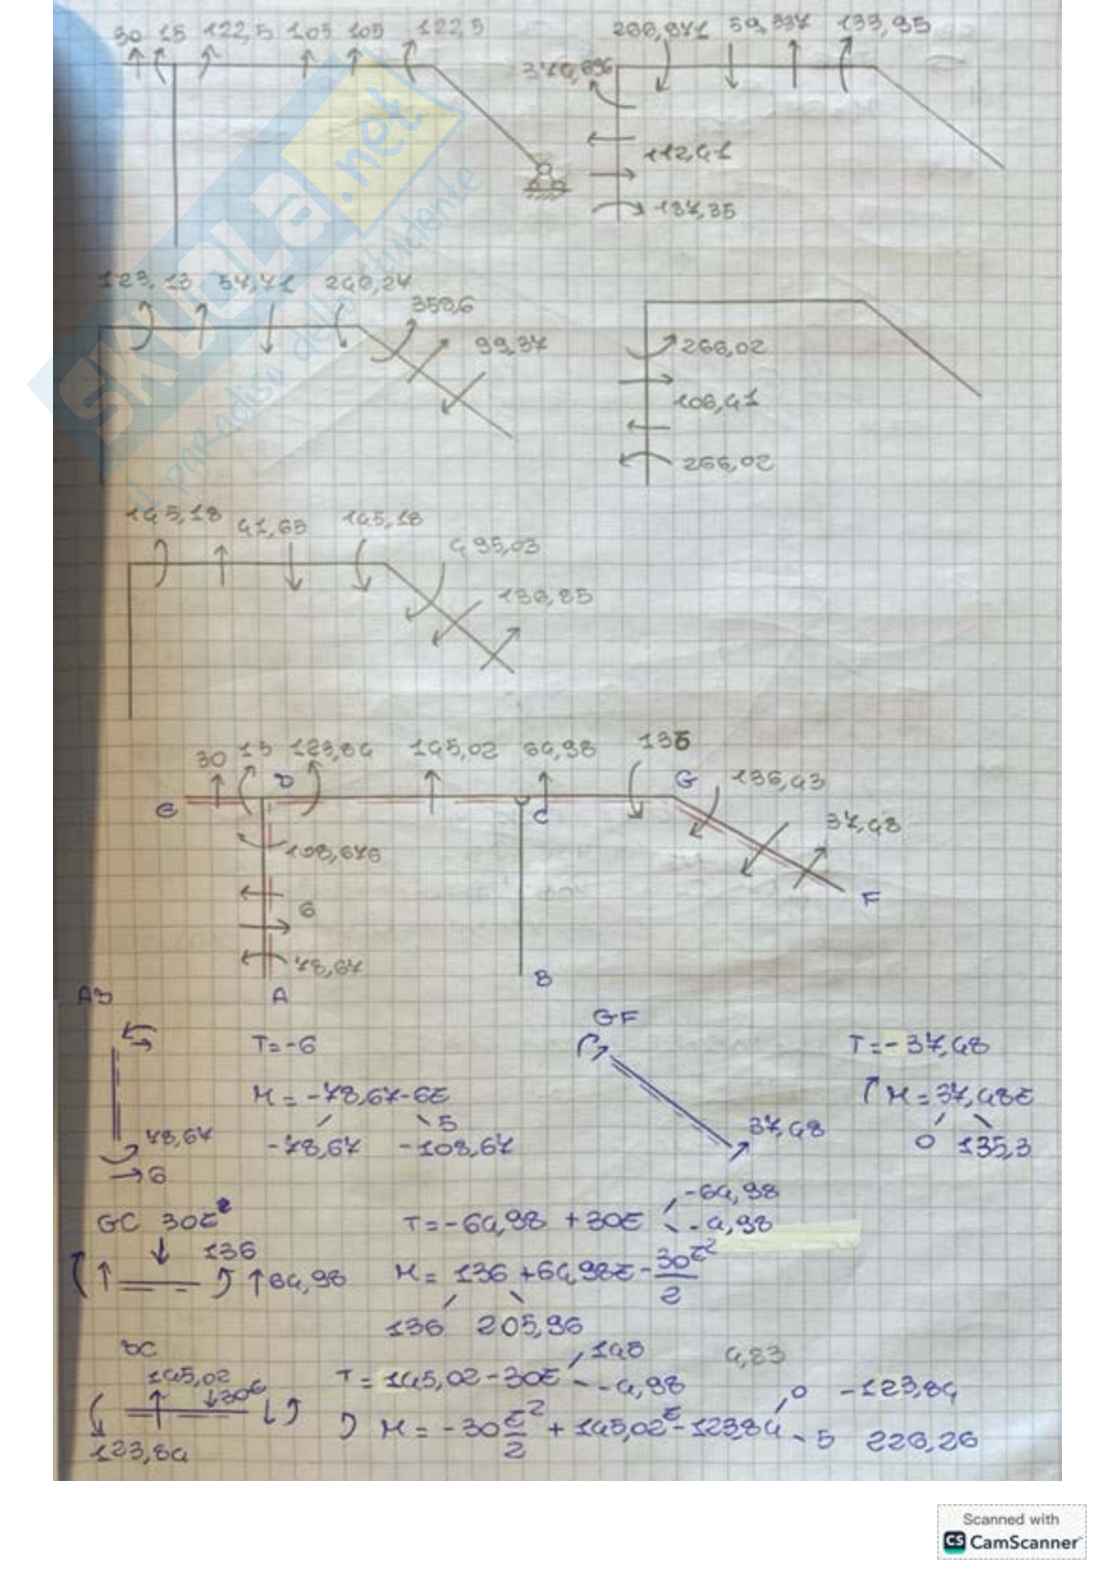 30 15 122,5 105 105 122,5
266,971 59,337 133,95
370,696
112,41
187,35
SKUOLA.net
123,13 54,71 240,24
359,6
99,37
266,02
106,41
266,02
145,18 41,65 145,18
495,03
136,85
30 15 123,84 145,02 64,98 136
D G
136,43
E C
37,48
108,676
F
6
78,67
A B
AD
GF
T=-6
T=-37,48
M=-78,67-6z
M=37,48z
5
78,67 -78,67 -108,67
37,48 0 135,3
6
GC 30z²
T=-64,98+30z -64,98
-4,98
136
64,98 M=136+64,98z-30z²/2
136 205,96
DC
145,02 T=145,02-30z 145 4,83
30z -4,98
M=-30z²/2+145,02z-123,84 0 -123,84
123,84 5 226,26
Scanned with
CS CamScanner